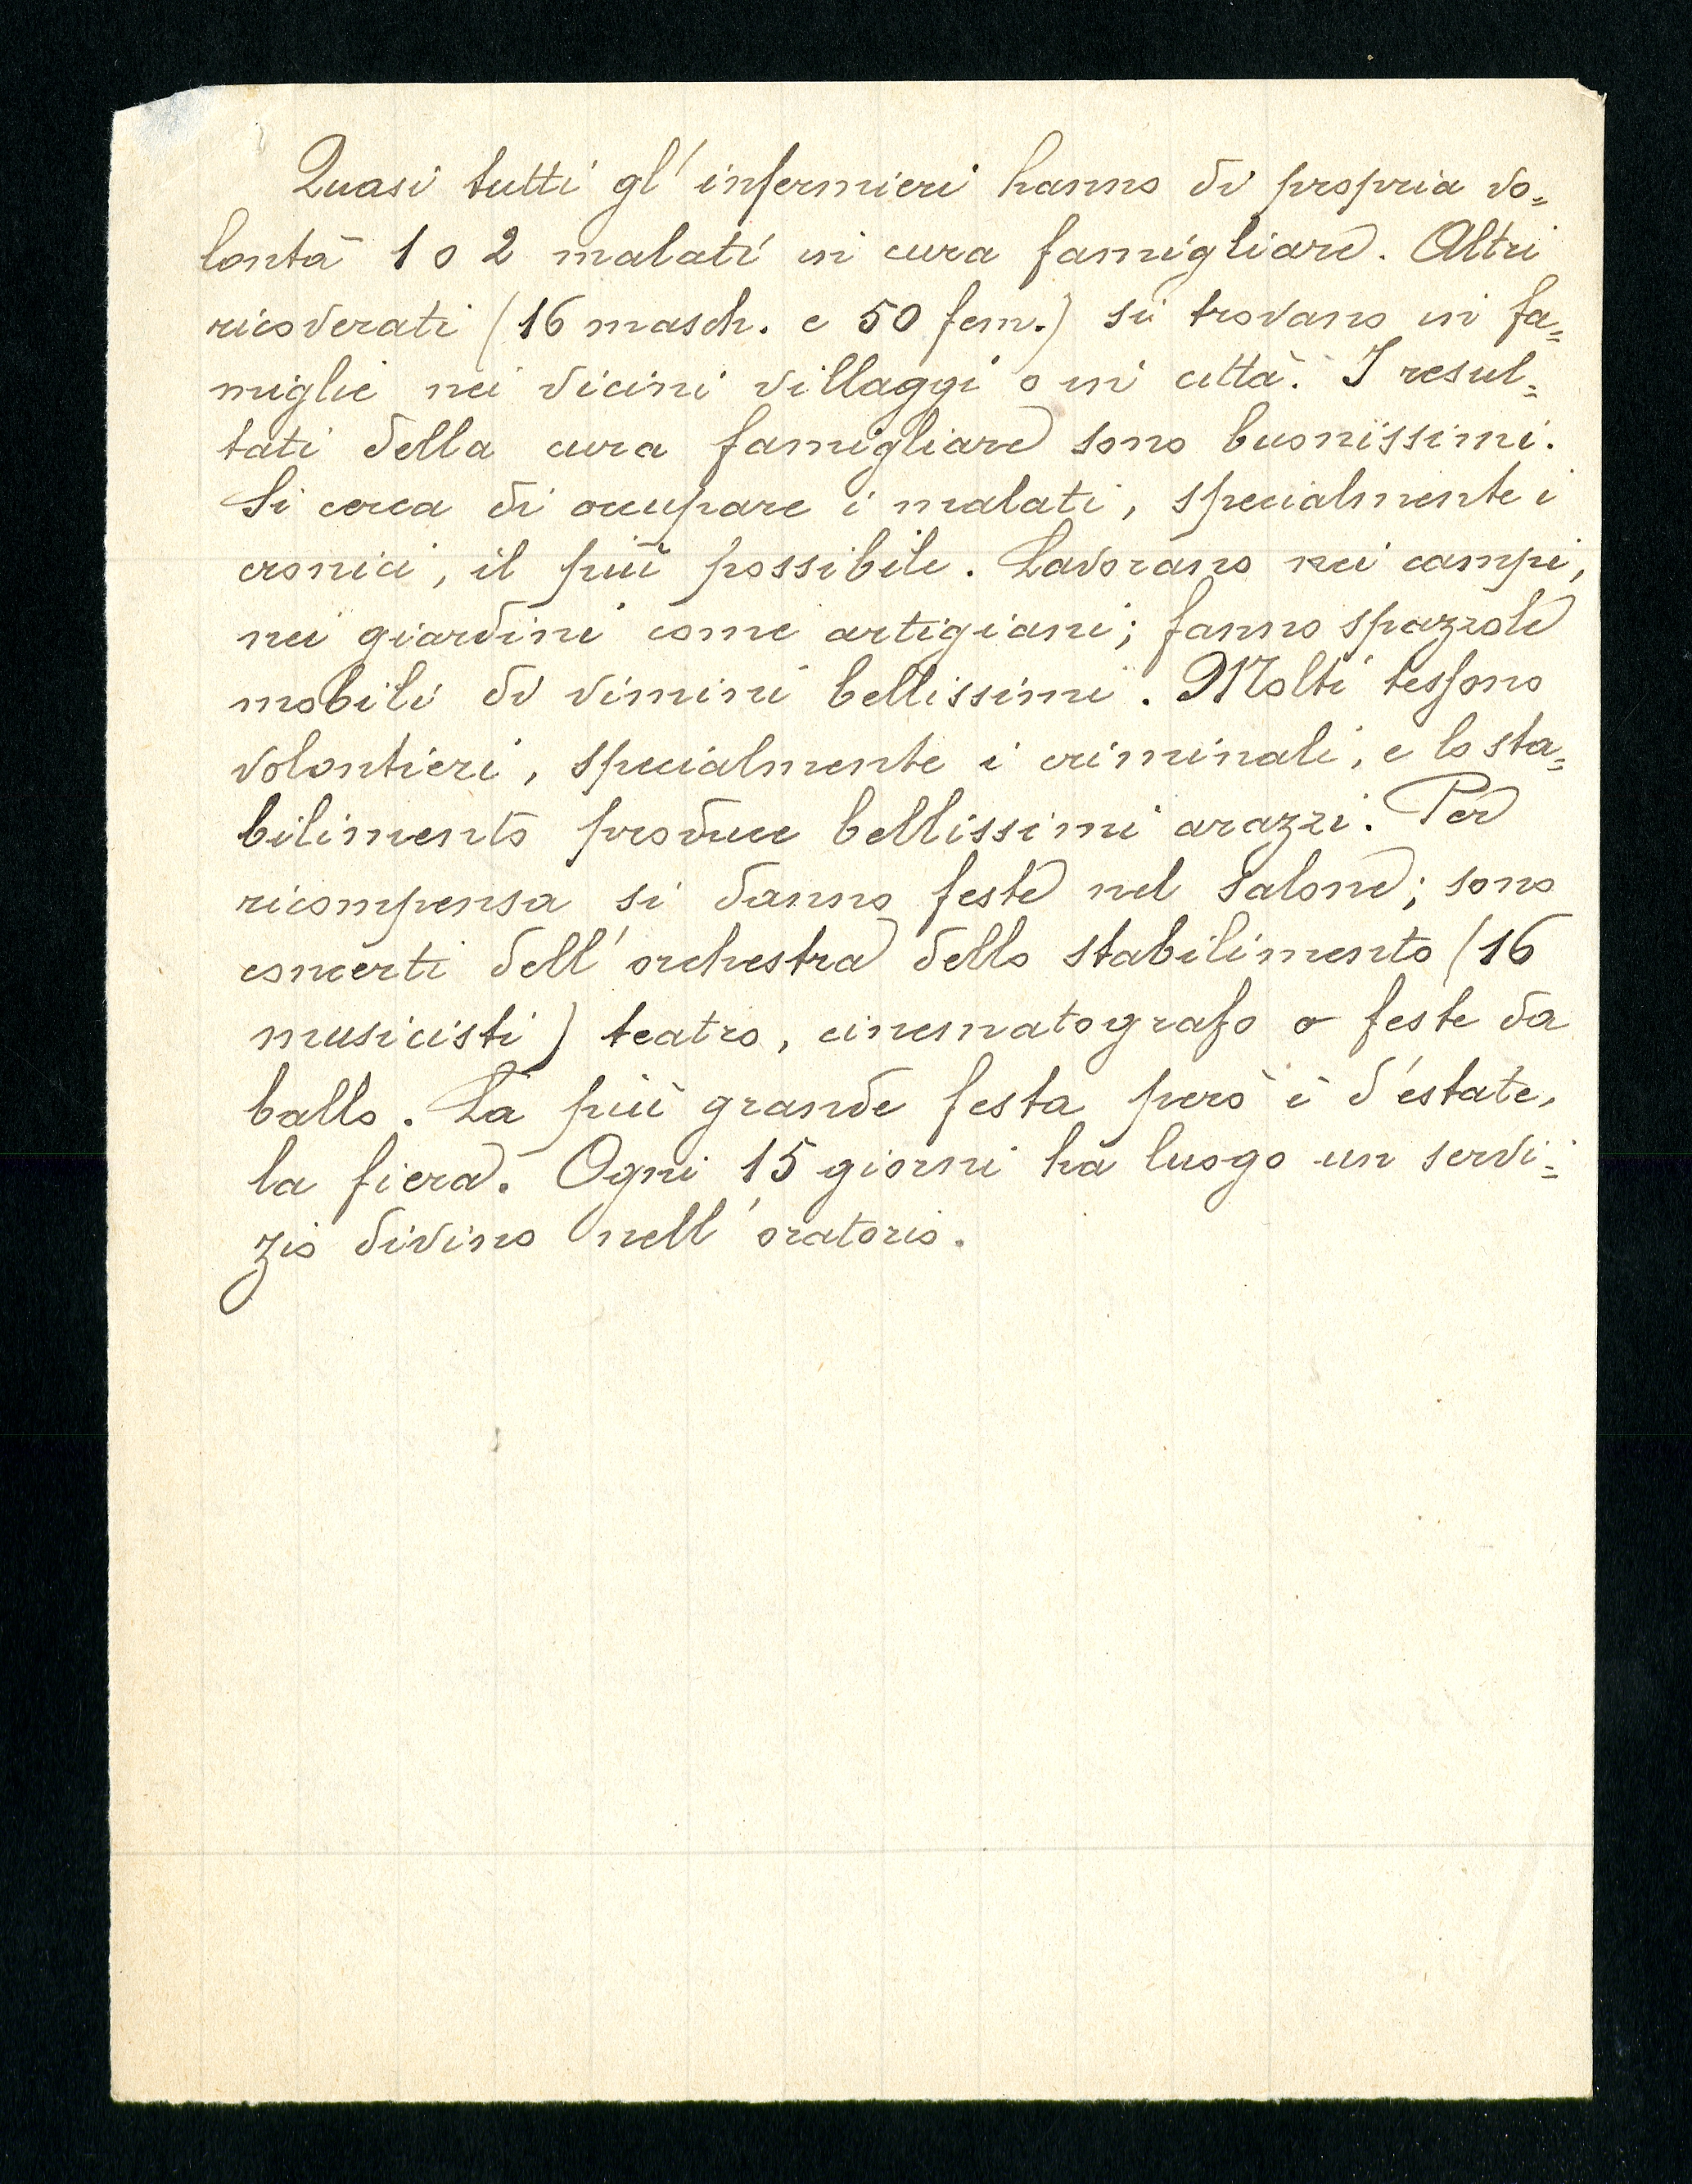 Quasi tutti gl' infermieri hanno di propria vo=
lontà 1 o 2 malati in cura famigliare. Altri
ricoverati (16 masch. e 50 fem.) si trovano in fa=
miglie nei vicini villaggi o in città. I resul=
tati della cura famigliare sono buonissimi.
Si cerca di occupare i malati, specialmente i
cronici, il più possibile. Lavorano nei campi,
nei giardini come artigiani; fanno spazzole
mobili di vimini bellissimi. Molti tessono
volontieri, specialmente i criminali, e lo sta=
bilimento produce bellissimi arazzi. Per
ricompensa si danno feste nel Salone; sono
concerti dell' orchestra dello stabilimento (16
musicisti) teatro, cinematografo o feste da
ballo. La più grande festa però è d'estate,
la fiera. Ogni 15 giorni ha luogo un servi=
zio divino nell' oratorio.